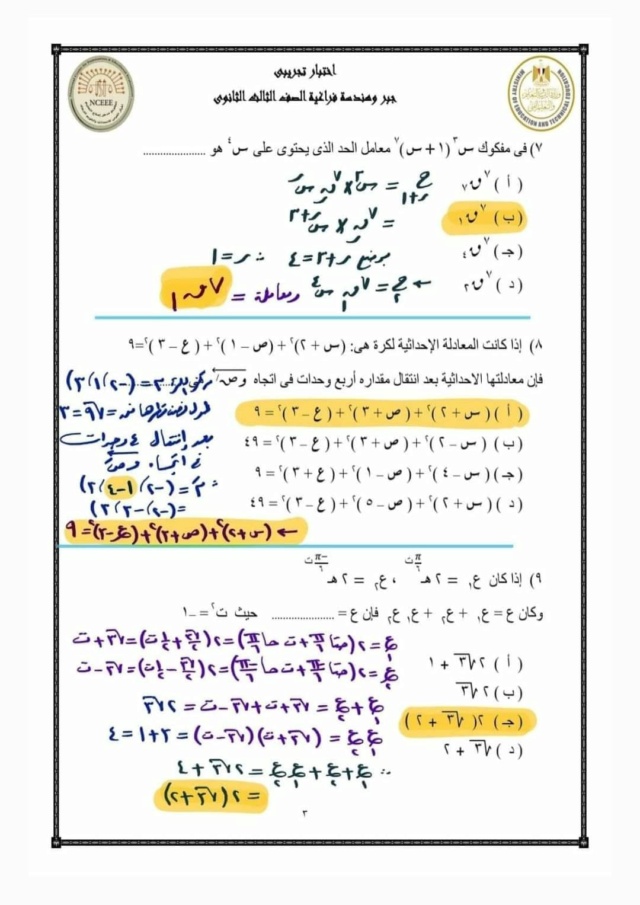 اختبار تجريبى
جبر وهندسة فراغية الصف الثالث الثانوى
NCEEE
MINISTRY OF EDUCATION AND TECHNICAL EDUCATION
٧) فى مفكوك س³ (١ + س)⁷ معامل الحد الذى يحتوى على س⁴ هو ....................
( أ ) ⁷ق٧
(ب) ⁷ق١
(جـ) ⁷ق٤
( د ) ⁷ق٢
ح ر+١ = س³ × ⁷ق ر س^ر
= ⁷ق ر × س^ر+٣
بوضع ر+٣=٤ ∴ ر=١
← ح٢ = ⁷ق١ س⁴ ومعاملة = ⁷ق١
٨) إذا كانت المعادلة الإحداثية لكرة هى: (س + ٢)² + (ص − ١)² + (ع − ٣)² = ٩
فإن معادلتها الاحداثية بعد انتقال مقداره أربع وحدات فى اتجاه وصَ
( أ ) (س + ٢)² + (ص + ٣)² + (ع − ٣)² = ٩
(ب) (س − ٢)² + (ص + ٣)² + (ع − ٣)² = ٤٩
(جـ) (س − ٤)² + (ص − ١)² + (ع + ٣)² = ٩
( د ) (س + ٢)² + (ص − ٥)² + (ع − ٣)² = ٤٩
مركز الكرة م = (−٢، ١، ٣)
طول نصف قطرها نق = √٩ = ٣
بعد إنتقال ٤ وحدات
فى اتجاه وصَ
∴ مَ = (−٢، ١−٤، ٣)
= (−٢، −٣، ٣)
← (س+٢)² + (ص+٣)² + (ع−٣)² = ٩
٩) إذا كان ع١ = ٢ هـ^(π/٦ ت) ، ع٢ = ٢ هـ^(−π/٦ ت)
وكان ع = ع١ + ع٢ + ع١ ع٢ فإن ع = .................... حيث ت² = −١
( أ ) ٢√٣ + ١
(ب) ٢√٣
(جـ) ٢(√٣ + ٢)
( د ) √٣ + ٢
ع١ = ٢(حتا π/٦ + ت حا π/٦) = ٢(√٣/٢ + ١/٢ ت) = √٣ + ت
ع٢ = ٢(حتا −π/٦ + ت حا −π/٦) = ٢(√٣/٢ − ١/٢ ت) = √٣ − ت
ع١ + ع٢ = √٣ + ت + √٣ − ت = ٢√٣
ع١ ع٢ = (√٣ + ت)(√٣ − ت) = ٣ + ١ = ٤
∴ ع١ + ع٢ + ع١ ع٢ = ٢√٣ + ٤
= ٢(√٣ + ٢)
٣